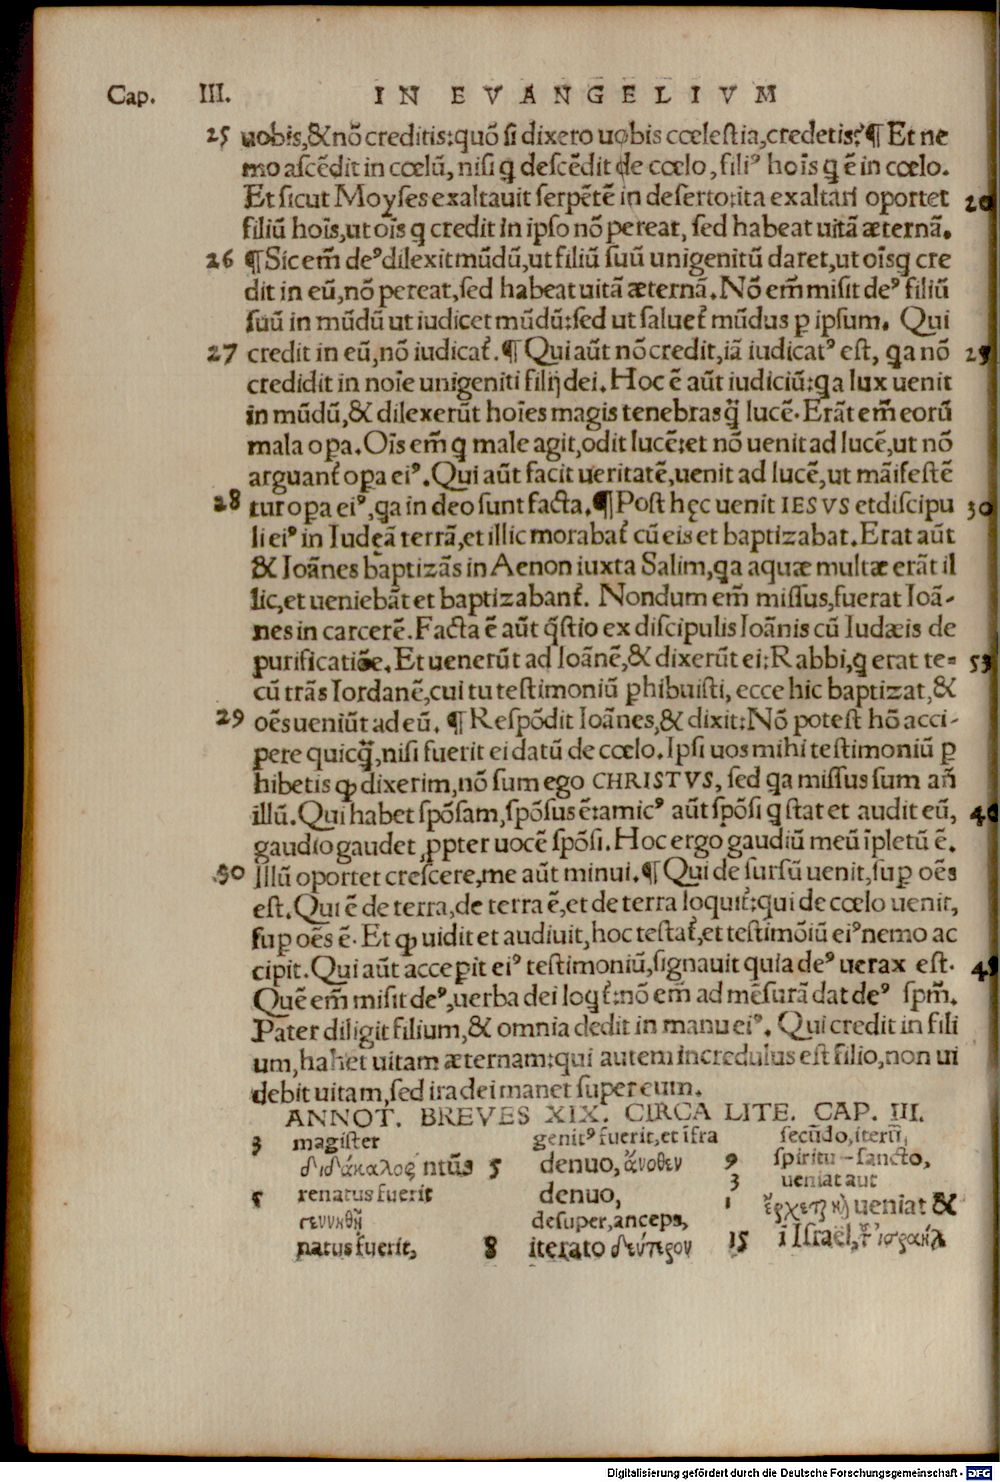 Cap. III. IN EVANGELIVM
25 uobis,&nõ creditis:quõ si dixero uobis cœlestia,credetis?¶ Et ne
mo ascẽdit in cœlũ, nisi q descẽdit de cœlo, fili⁹ hoĩs q ẽ in cœlo.
Et sicut Moyses exaltauit serpẽtẽ in deserto:ita exaltari oportet 20
filiũ hoĩs,ut oĩs q credit in ipso nõ pereat, sed habeat uitã æternã.
26 ¶ Sic em̃ de⁹ dilexit mũdũ,ut filiũ suũ unigenitũ daret,ut oĩsq cre
dit in eũ,nõ pereat,sed habeat uitã æternã. Nõ em̃ misit de⁹ filiũ
suũ in mũdũ ut iudicet mũdũ:sed ut saluet᷑ mũdus ꝑ ipsum. Qui
27 credit in eũ,nõ iudicat᷑.¶ Qui aũt nõ credit,iã iudicat⁹ est, qa nõ 25
credidit in noĩe unigeniti filij dei. Hoc ẽ aũt iudiciũ:qa lux uenit
in mũdũ,& dilexerũt hoĩes magis tenebras q̃ lucẽ. Erãt em̃ eorũ
mala oꝑa. Oĩs em̃ q male agit,odit lucẽ:et nõ uenit ad lucẽ,ut nõ
arguant᷑ oꝑa ei⁹. Qui aũt facit ueritatẽ,uenit ad lucẽ,ut mãifestẽ
28 tur oꝑa ei⁹,qa in deo sunt facta.¶ Post hęc uenit IESVS et discipu 30
li ei⁹ in Iudęã terrã,et illic morabat᷑ cũ eis et baptizabat. Erat aũt
& Ioãnes baptizãs in Aenon iuxta Salim,qa aquæ multæ erãt il
lic,et ueniebãt et baptizabant᷑. Nondum em̃ missus,fuerat Ioã-
nes in carcerẽ. Facta ẽ aũt q̃stio ex discipulis Ioãnis cũ Iudæis de
purificatiõe. Et uenerũt ad Ioãnẽ,& dixerũt ei:Rabbi,q erat te= 53
cũ trãs Iordanẽ,cui tu testimoniũ ꝑhibuisti, ecce hic baptizat,&
29 oẽs ueniũt ad eũ. ¶ Respõdit Ioãnes,& dixit:Nõ potest hõ acci-
pere quicq̃,nisi fuerit ei datũ de cœlo. Ipsi uos mihi testimoniũ ꝑ
hibetis ꝙ dixerim,nõ sum ego CHRISTVS, sed qa missus sum añ
illũ. Qui habet spõsam,spõsus ẽ:amic⁹ aũt spõsi q stat et audit eũ, 40
gaudio gaudet ꝓpter uocẽ spõsi. Hoc ergo gaudiũ meũ ĩpletũ ẽ.
30 Illũ oportet crescere,me aũt minui.¶ Qui de sursũ uenit,suꝑ oẽs
est. Qui ẽ de terra,de terra ẽ,et de terra loquit᷑:qui de cœlo uenit,
suꝑ oẽs ẽ. Et ꝙ uidit et audiuit,hoc testat᷑,et testimõiũ ei⁹ nemo ac
cipit. Qui aũt accepit ei⁹ testimoniũ,signauit quia de⁹ uerax est. 45
Quẽ em̃ misit de⁹,uerba dei loqt᷑:nõ em̃ ad mẽsurã dat de⁹ spm̃.
Pater diligit filium,& omnia dedit in manu ei⁹. Qui credit in fili
um,habet uitam æternam:qui autem incredulus est filio,non ui
debit uitam,sed ira dei manet super eum.
ANNOT. BREVES XIX. CIRCA LITE. CAP. III.
3 magister
διδάκαλος ntũs
5 renatus fuerit
γεννηθῇ
natus fuerit,
genit⁹ fuerit,et ĩfra
5 denuo, ἄνοθεν
denuo,
desuper,anceps,
8 iterato δεύτερον
secũdo,iterũ,
9 spiritu sancto,
3 ueniat aut
1 ἔρχεται καὶ ueniat &
15 ĩ Israël, τ͂ ἰσραὴλ
Digitalisierung gefördert durch die Deutsche Forschungsgemeinschaft - DFG